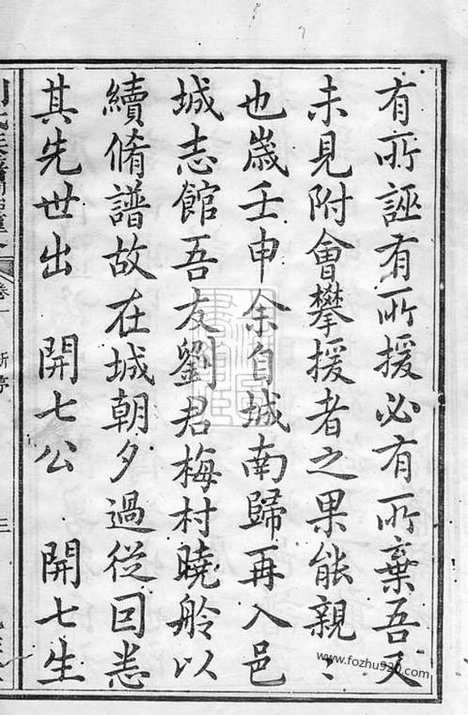 有所誣有所援必有所棄吾又
未見附會攀援者之果能親〻
也歲壬申余自城南歸再入邑
城志館吾友劉君梅村曉舲以
續脩譜故在城朝夕過從因悉
其先世出　開七公　開七生
卷一
三
www.fozhu920.com